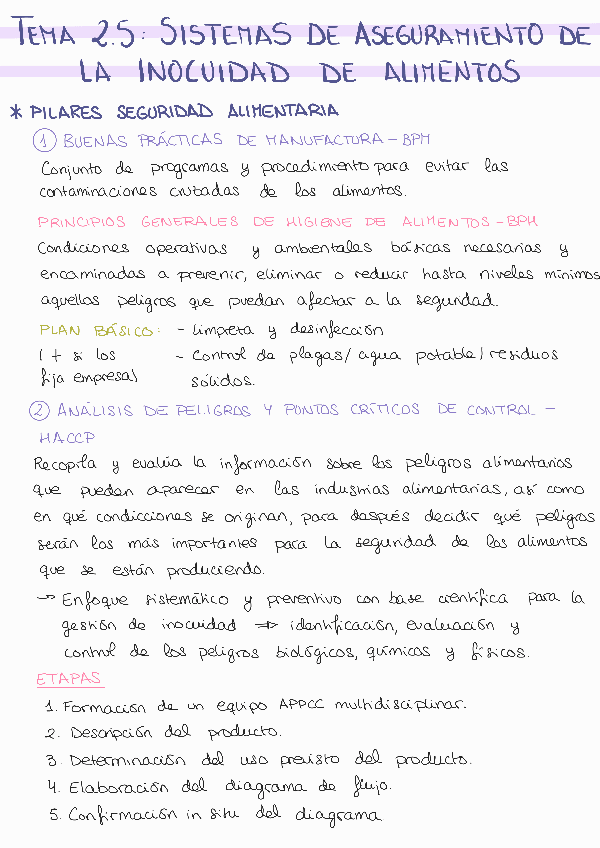 TEMA 2.5: SISTEMAS DE ASEGURAMIENTO DE
LA INOCUIDAD DE ALIMENTOS
* PILARES SEGURIDAD ALIMENTARIA
① BUENAS PRÁCTICAS DE MANUFACTURA - BPM
Conjunto de programas y procedimiento para evitar las
contaminaciones cruzadas de los alimentos.
PRINCIPIOS GENERALES DE HIGIENE DE ALIMENTOS - BPH
Condiciones operativas y ambientales básicas necesarias y
encaminadas a prevenir, eliminar o reducir hasta niveles mínimos
aquellos peligros que puedan afectar a la seguridad.
PLAN BÁSICO: - Limpieza y desinfección
(+ si los - Control de plagas/ agua potable/ residuos
fija empresa) sólidos.
② ANÁLISIS DE PELIGROS Y PUNTOS CRÍTICOS DE CONTROL -
HACCP
Recopila y evalúa la información sobre los peligros alimentarios
que pueden aparecer en las industrias alimentarias, así como
en qué condicciones se originan, para después decidir qué peligros
serán los más importantes para la seguridad de los alimentos
que se están produciendo.
→ Enfoque sistemático y preventivo con base científica para la
gestión de inocuidad ⇒ identificación, evaluación y
control de los peligros biológicos, químicos y físicos.
ETAPAS
1. Formación de un equipo APPCC multidisciplinar.
2. Descripción del producto.
3. Determinación del uso previsto del producto.
4. Elaboración del diagrama de flujo.
5. Confirmación in situ del diagrama